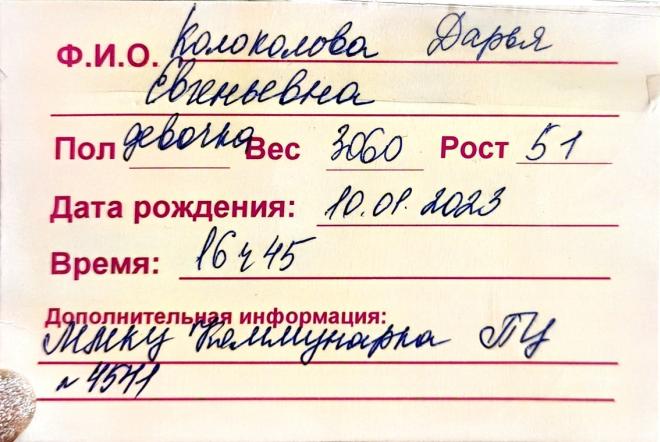 Ф.И.О. Колоколова Дарья
Евгеньевна
Пол девочка Вес 3060 Рост 51
Дата рождения: 10.01.2023
Время: 16 ч 45
Дополнительная информация:
ММКЦ "Коммунарка ПЦ
№ 4571